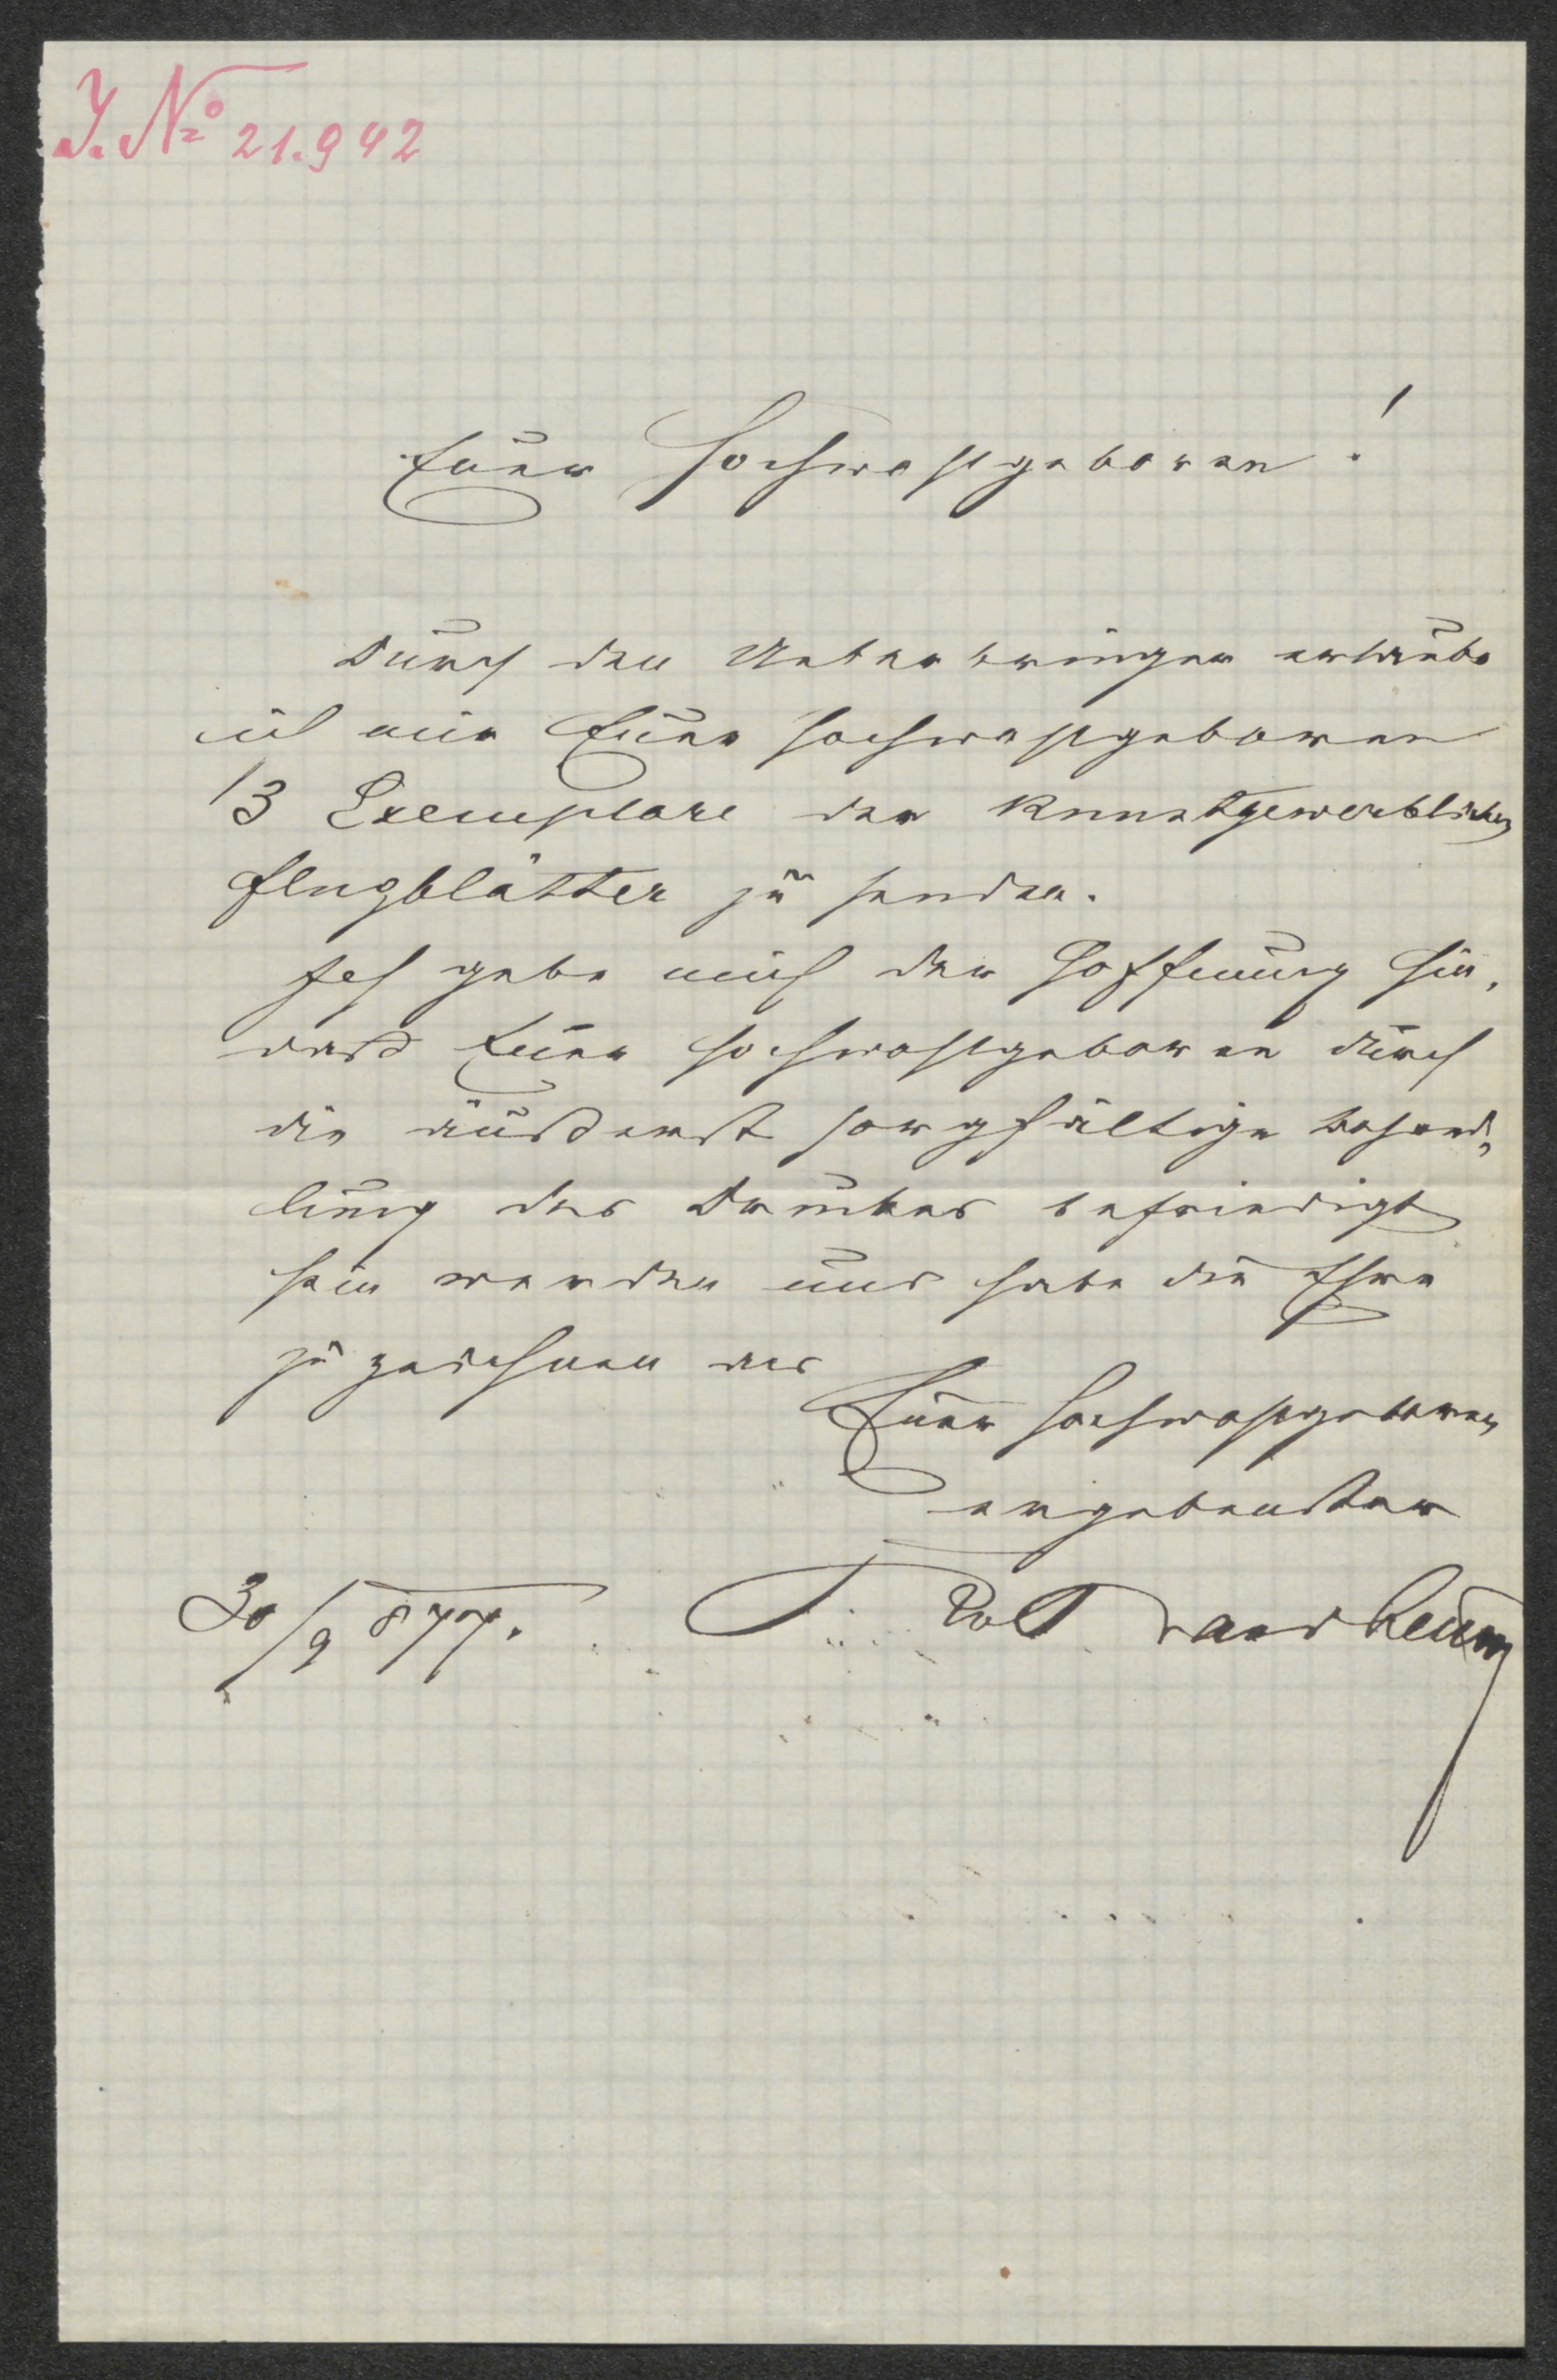 J. No 21.942
Euer Hochwohlgeboren!
Durch den Ueberbringer erlaube
ich mir Euer Hochwohlgeboren
13 Exemplare der Kunstgewerblichen
Flugblätter zu senden.
Ich gebe mich der Hoffnung hin,
daß Euer Hochwohlgeboren durch
die äußerst sorgfältige Behand-
lung des Druckes befriedigt
sein werden und habe die Ehre
zu zeichnen als
Euer Hochwohlgeboren
ergebenster
30/9 877.